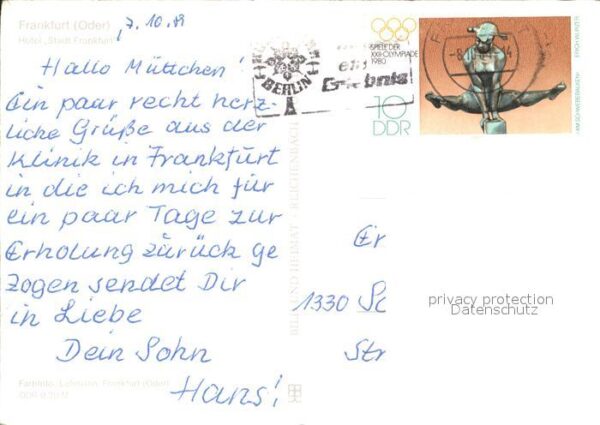 Frankfurt (Oder)
Hotel „Stadt Frankfurt"
7. 10. 81
Hallo Müttchen!
Ein paar recht herz-
liche Grüße aus der
Klinik in Frankfurt
in die ich mich für
ein paar Tage zur
Erholung zurück ge
zogen sendet Dir
in Liebe
Dein Sohn
Hans!
Farbfoto: Lehmann, Frankfurt (Oder)
BILD UND HEIMAT · REICHENBACH
BERLIN
ein
Erlebnis
SPIELE DER
XXII. OLYMPIADE
1980
10
DDR
AM SCHWEBEBALKEN
ERICH WURZER
Er
1330 Sc
Str
privacy protection
Datenschutz